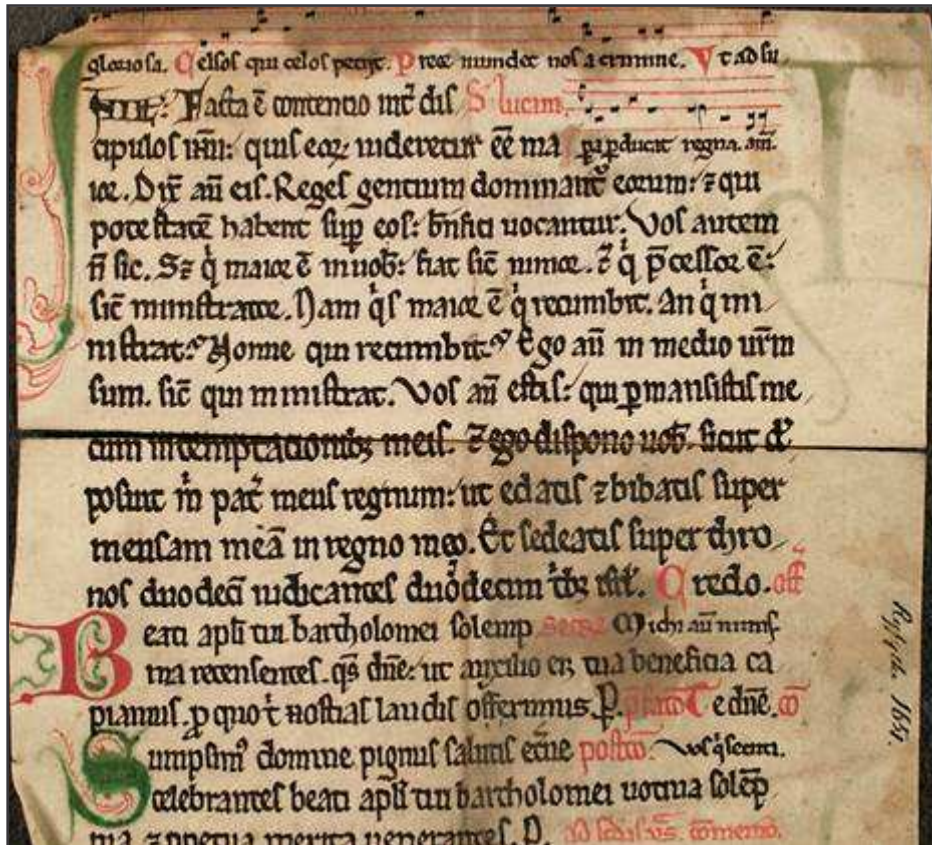 gloriosa. Celsos qui celos petiit. Prece mundet nos a crimine. Vt ad su
Facta ē contentio int̄ dis S. lucam.
cipulos ih̄u: quis eoꝝ uideretur eē ma p̱a ꝑducat regna. am̄.
ior. Dix̄ aū eis. Reges gentium dominant᷑ eorum: ⁊ qui
potestatē habent sup̱ eos: bn̄fici uocantur. Vos autem
n̄ sic. Sꝫ q̇ maior ē in uob̄: fiat sic̄ minor. ⁊ q̇ p̄cessor ē:
sic̄ ministrator. Nam q̇s maior ē q̇ recumbit. An q̇ mi
nistrat? Nonne qui recumbit? Ego aū in medio ur̄m
sum. sic̄ qui ministrat. Vos aū estis: qui ꝑmansistis me
cum in temptationibꝫ meis. ⁊ ego dispono uob̄. sicut di
posuit m̄ pat̄ meus regnum: ut edatis ⁊ bibatis super
mensam meā in regno meo. Et sedeatis super thro
nos duodeci̅ iudicantes duodecim ṫbꝫ isr̄l. Credo. off̄
Beati apl̄i tui bartholomei solemp secreta Michi aū nimis
nia recensentes. qs̄ dn̄e: ut auxilio eiꝰ tua beneficia ca
piamus. ꝓ quo ṫ hostias laudis offerimus. P. p̄fatio Te dn̄e. co̅
Sumpsimꝰ domine pignus salutis et̄ne postco̅. Vos q̇ secuti.
celebrantes beati apl̄i tui bartholomei uotiua solēp
nia ⁊ ꝑpetua merita uenerantes. P.
Ryfylk. 1651.